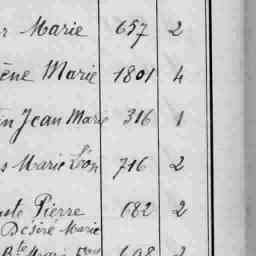 Marie 657 2
ène Marie 1801 4
n Jean Marie 316 1
s Marie Léon 716 2
Pierre 682 2
Désiré Marie
Bte